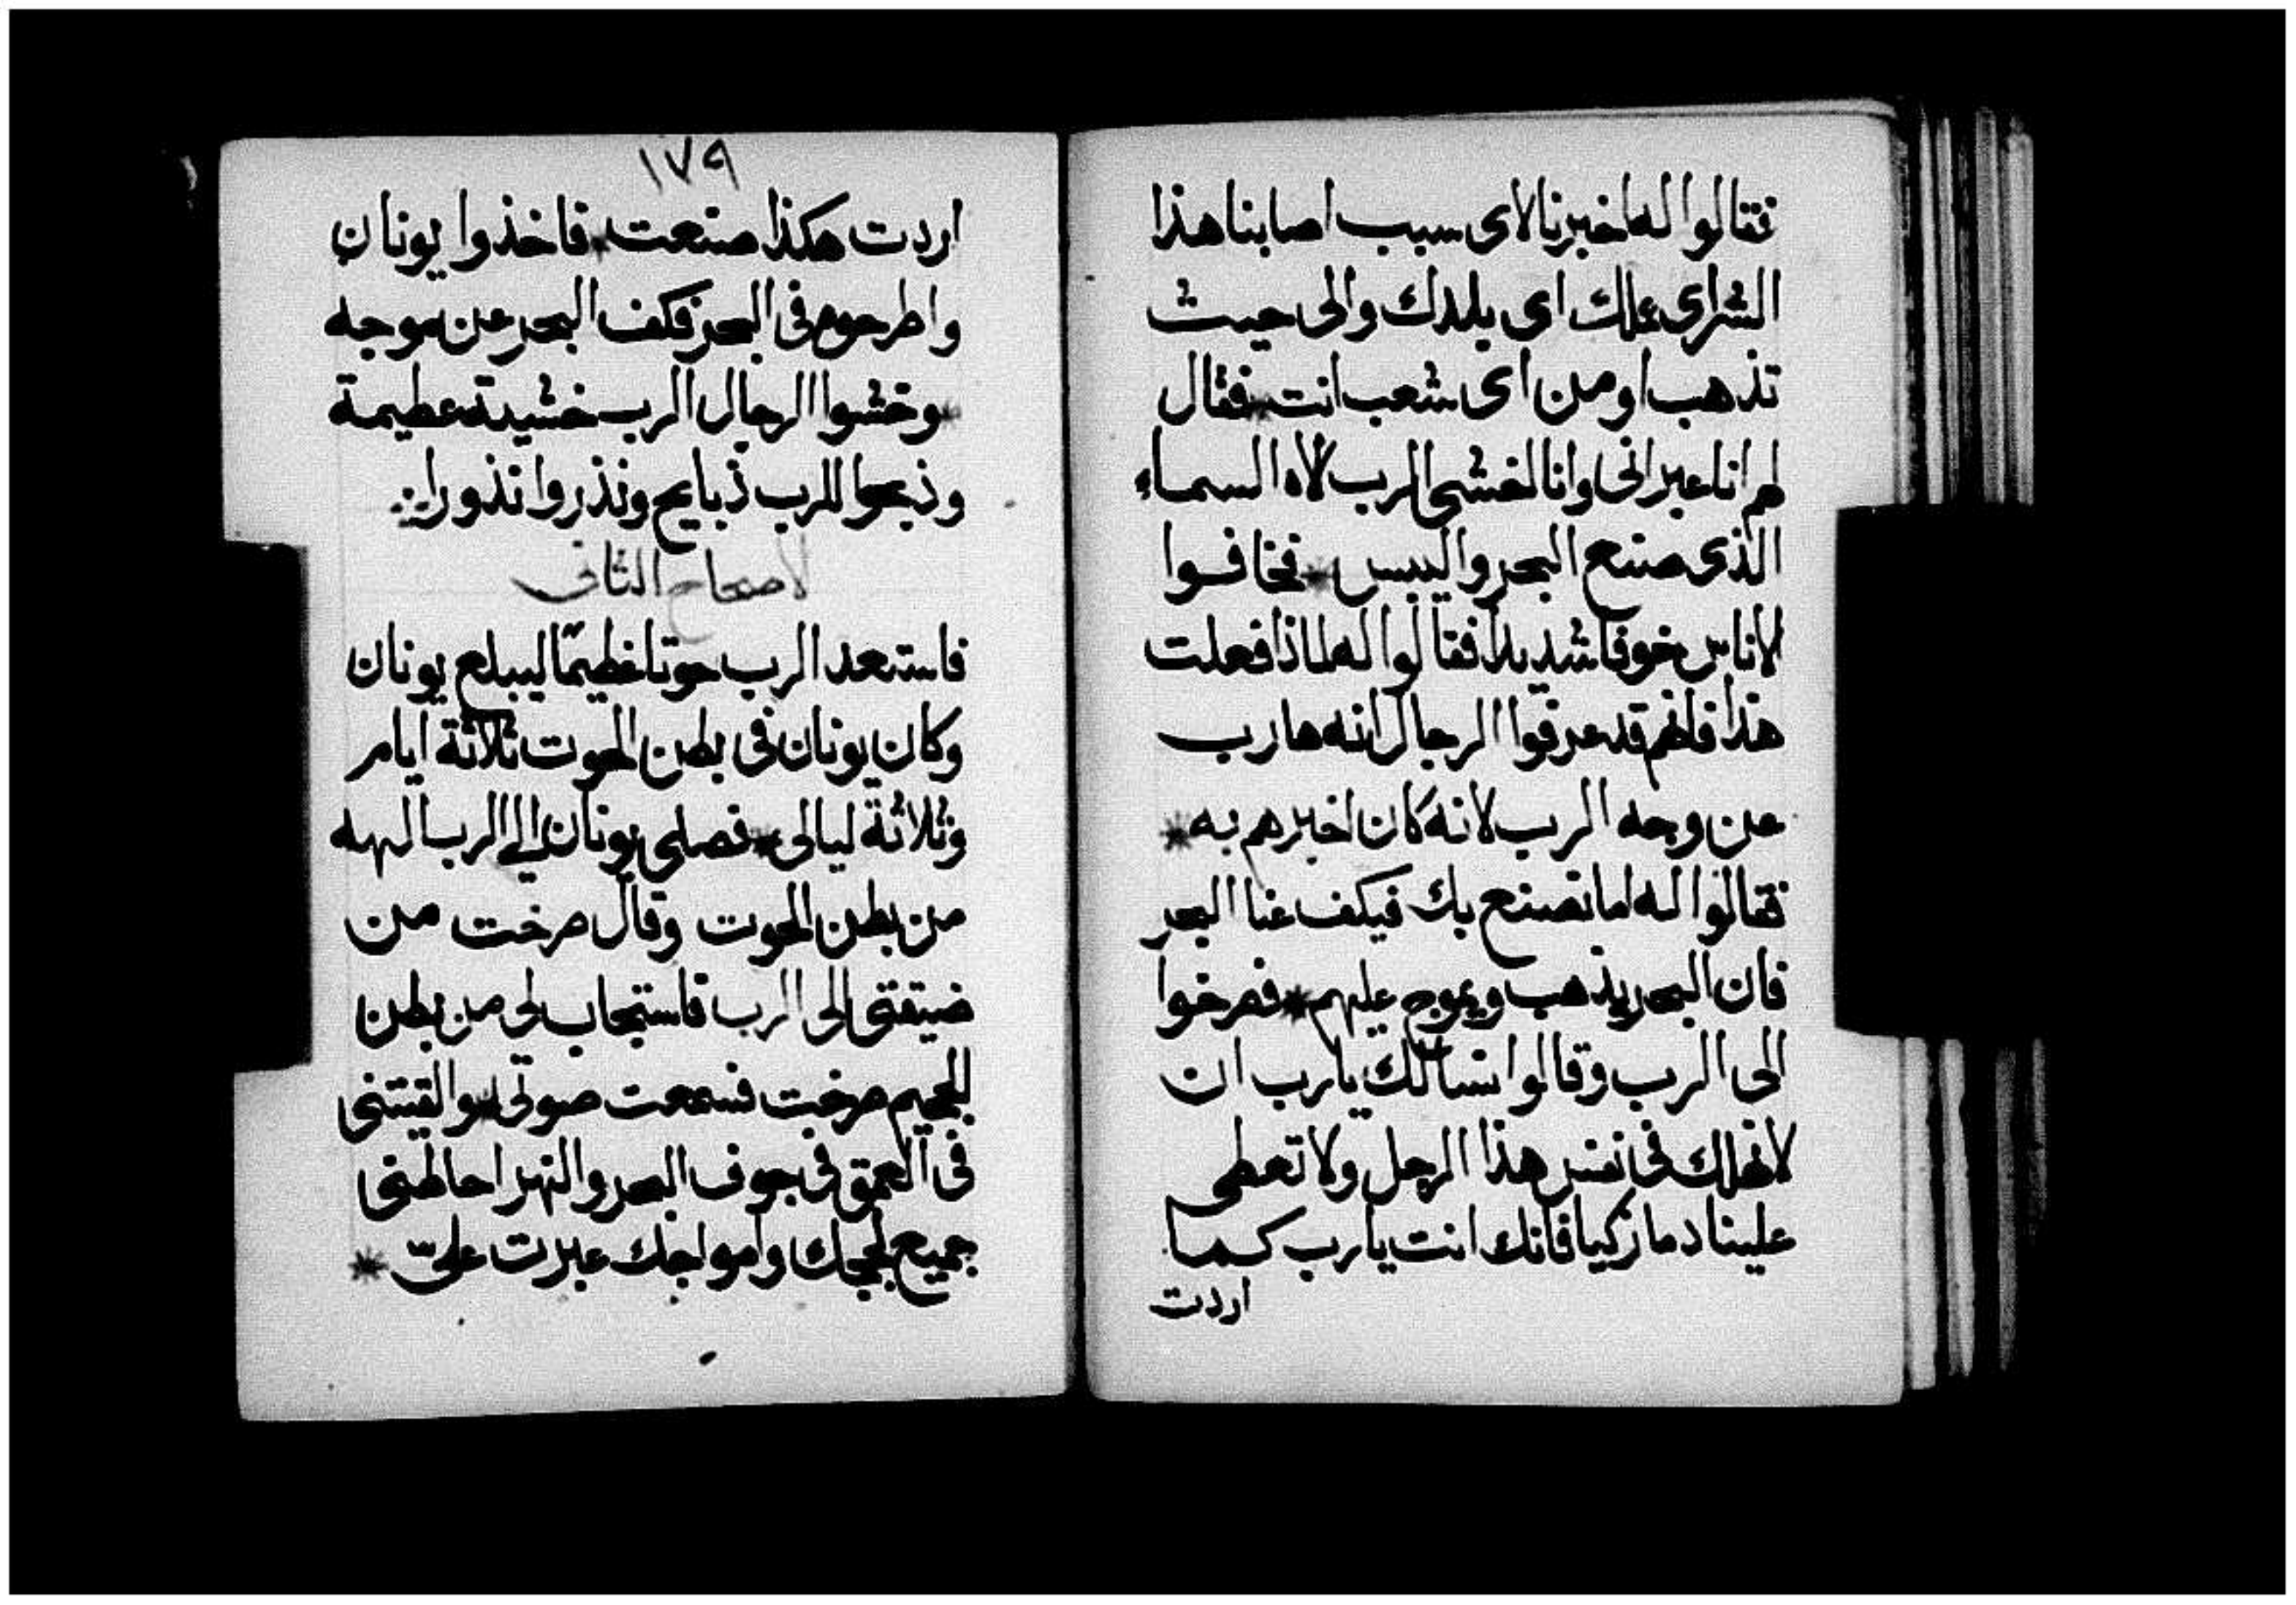 فقالوا له اخبرنا لاى سبب اصابنا هذا
الشر اى عملك اى بلدك والى حيث
تذهب او من اى شعب انت * فقال
لهم انا عبرانى وانا اخشى الرب لاه السماء
الذى صنع البحر واليبس * فخافوا
لاناس خوفا شديدا فقالوا له لماذا فعلت
هذا فانهم قد عرفوا الرجال انه هارب
عن وجه الرب لانه كان اخبرهم به *
فقالوا له اما نصنع بك فيكف عنا البحر
فان البحر يذهب ويموج عليهم * فصرخوا
الى الرب وقالوا نسالك يارب ان
لا نهلك فى نفس هذا الرجل ولا تعطى
علينا دما زكيا فانك انت يارب كما
اردت
١٧٩
اردت هكذا صنعت * فاخذوا يونان
واطرحوه فى البحر فكف البحر عن موجه
* وخشوا الرجال الرب خشية عظيمة
وذبحوا للرب ذبايح ونذروا نذورا
لاصحاح الثانى
فاستعد الرب حوتا عظيمًا ليبلع يونان
وكان يونان فى بطن الحوت ثلاثة ايام
وثلاثة ليالى * فصلى يونان الى الرب الهه
من بطن الحوت وقال صرخت من
ضيقتى الى الرب فاستجاب لى من بطن
الجحيم صرخت فسمعت صوتى * والقيتنى
فى العمق فى جوف البحر والنهر احاطنى
جميع لججك وامواجك عبرت علىّ *